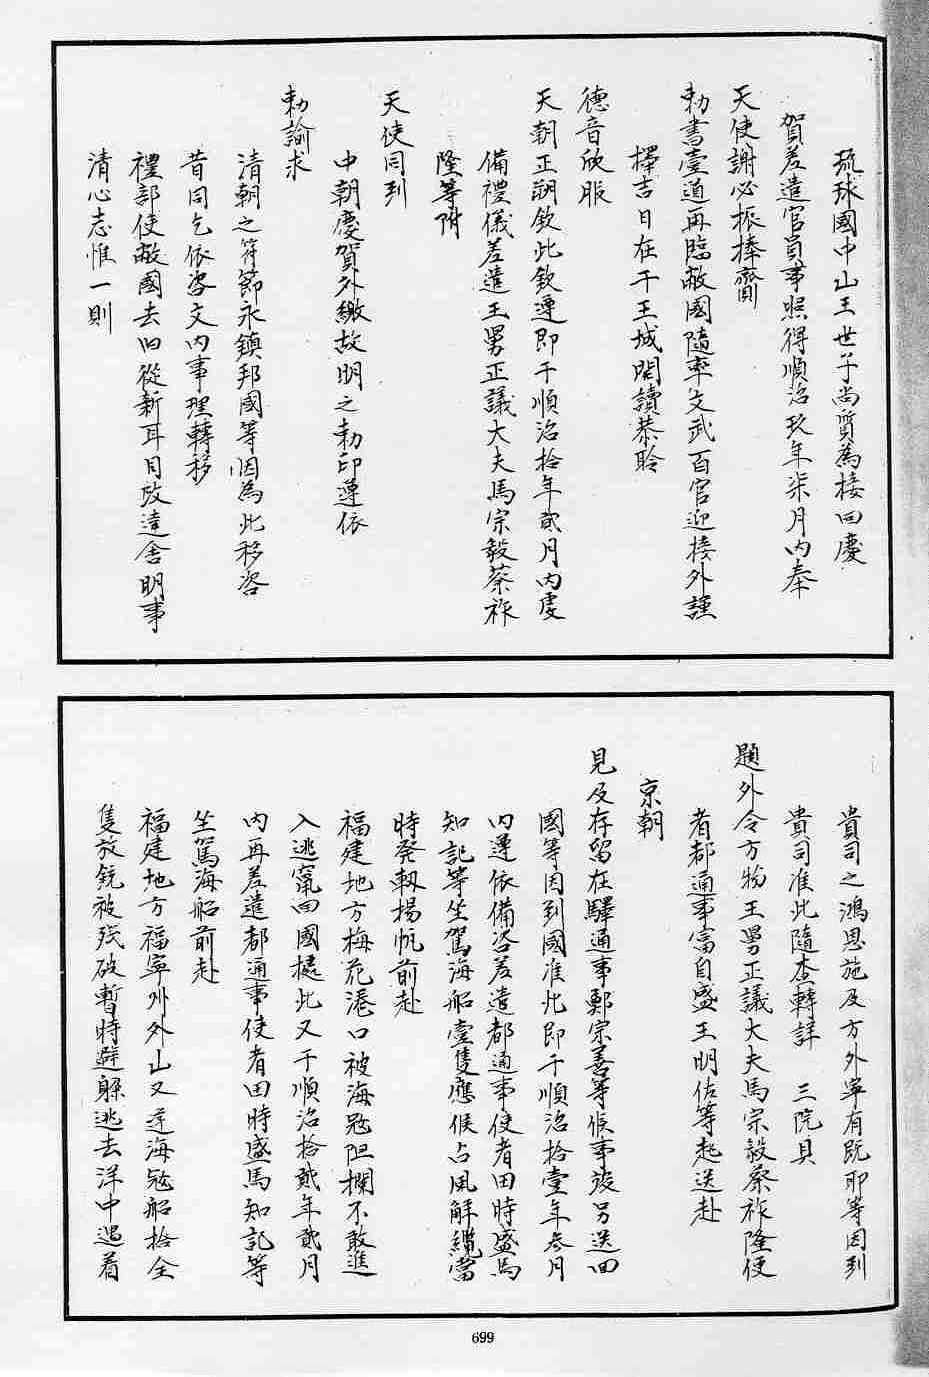 琉球國中山王世子尚質為接回慶
賀差遣官員事照得順治玖年柒月内奉
天使謝必振捧齎
勅書壹道再臨敝國隨率文武百官迎接外謹
擇吉日在于王城開讀恭聆
德音欣服
天朝正朔欽此欽遵即于順治拾年貳月内虔
備禮儀差遣王舅正議大夫馬宗毅蔡祚
隆等附
天使同到
中朝慶賀外繳故明之勅印遵依
勅諭求
清朝之符節永鎮邦國等因為此移咨
昔同乞依咨文内事理轉移
禮部使敝國去旧從新耳目改違舍明事
清心志惟一則
貴司之鴻恩施及方外寧有既耶等因到
貴司准此隨查轉詳 三院具
題外令方物王舅正議大夫馬宗毅蔡祚隆使
者都通事富自盛王明佐等起送赴
京朝
見及存留在驛通事鄭宗善等候事竣另送回
國等因到國准此即于順治拾壹年叁月
内遵依備咨差遣都通事使者田時盛馬
知記等坐駕海船壹隻應候占風解纜當
時発軔揚帆前赴
福建地方梅花港口被海寇阻攔不敢進
入逃竄回國據此又于順治拾貳年貳月
内再差遣都通事使者田時盛馬知記等
坐駕海船前赴
福建地方福寧州外山又逢海寇船拾全
隻放銃被残破暫時避躲逃去洋中遇着
699